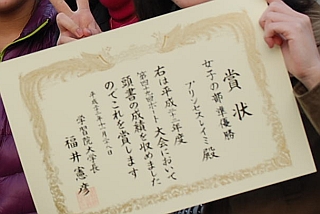 賞状
女子の部準優勝
プリンセスレイミ殿
右は平成廿三年度
第四十九回ボート大会において
頭書の成績を収めました
のでこれを賞します
平成廿三年十一月六日
学習院大学長
福井憲彦